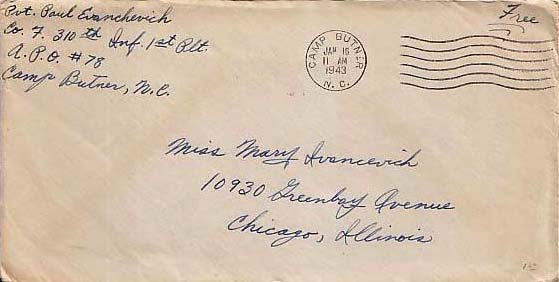 Pvt. Paul Evanchevich
Co. F. 310th Inf. 1st Plt.
A.P.O. # 78
Camp Butner, N.C.
CAMP BUTNER
JAN 16
11 AM
1943
N. C.
Free
Miss Mary Ivancevich
10930 Greenbay Avenue
Chicago, Illinois